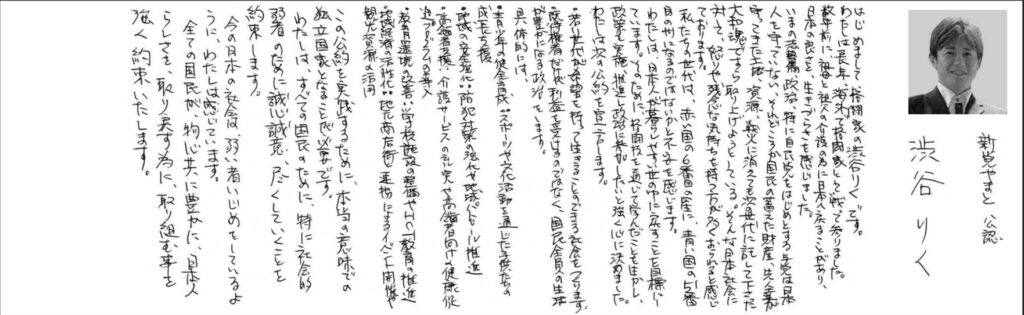 新党やまと 公認
渋谷 りく
はじめまして、格闘家、渋谷りくです。
わたしは長年、海外で格闘家として戦って参りました。
数年前に、祖母と祖父の介護の為に日本へ戻ることがあり、
日本の良さと、生きづらさを感じました。
いまの政治、特に自民党をはじめとする与党は日本
人を守っていない、それどころか国民の蓄えた財産、先人達が
守ってきた土地、資源、戦火に消えても次世代に託して下さった
大和魂ですら取り上げようとしている。そんな日本社会に
対して、怒りや残念な気持ちを持つ方が多くおられると感じ
ております。
私たちの世代は、赤い国の6番目の星に、青い国の51番
目の州になるのではないかと不安を感じます。
わたしは、日本人が暮らしやすい世の中に戻すことを目標に
しています。そのために、格闘技を通じて学んだことを生かし、
政策を実施、推進し政治に参加したいと強く心に決めました。
わたしは次の公約を宣言します。
・若い世代が希望を持って生きることのできる社会をつくります。
・既得権者だけが利益を受けるのではなく、国民全員の生活
が豊かになる政治をします。
具体的には、
・青少年の健全育成：スポーツや文化活動を通じた子供たちの
成長支援
・地域の安全強化：防犯対策の強化や地域パトロール推進
・高齢者支援：介護サービスの充実や高齢者向け健康促
進プログラムの導入
・教育環境の改善：学校施設の整備や教育の推進
・地域経済の活性化：地元商店街との連携によるイベント開催や
観光資源の活用
この公約を実践するために、本当の意味での
独立国家となることが必要です。
わたしは、すべての国民のために、特に社会的
弱者のために誠心誠意、尽くしていくことを
約束します。
今の日本の社会は、弱い者いじめをしているよ
うに、わたしは感じています。
全ての国民が、物心共に豊かに、日本人
らしさを、取り戻す為に、取り組む事を
強く約束いたします。